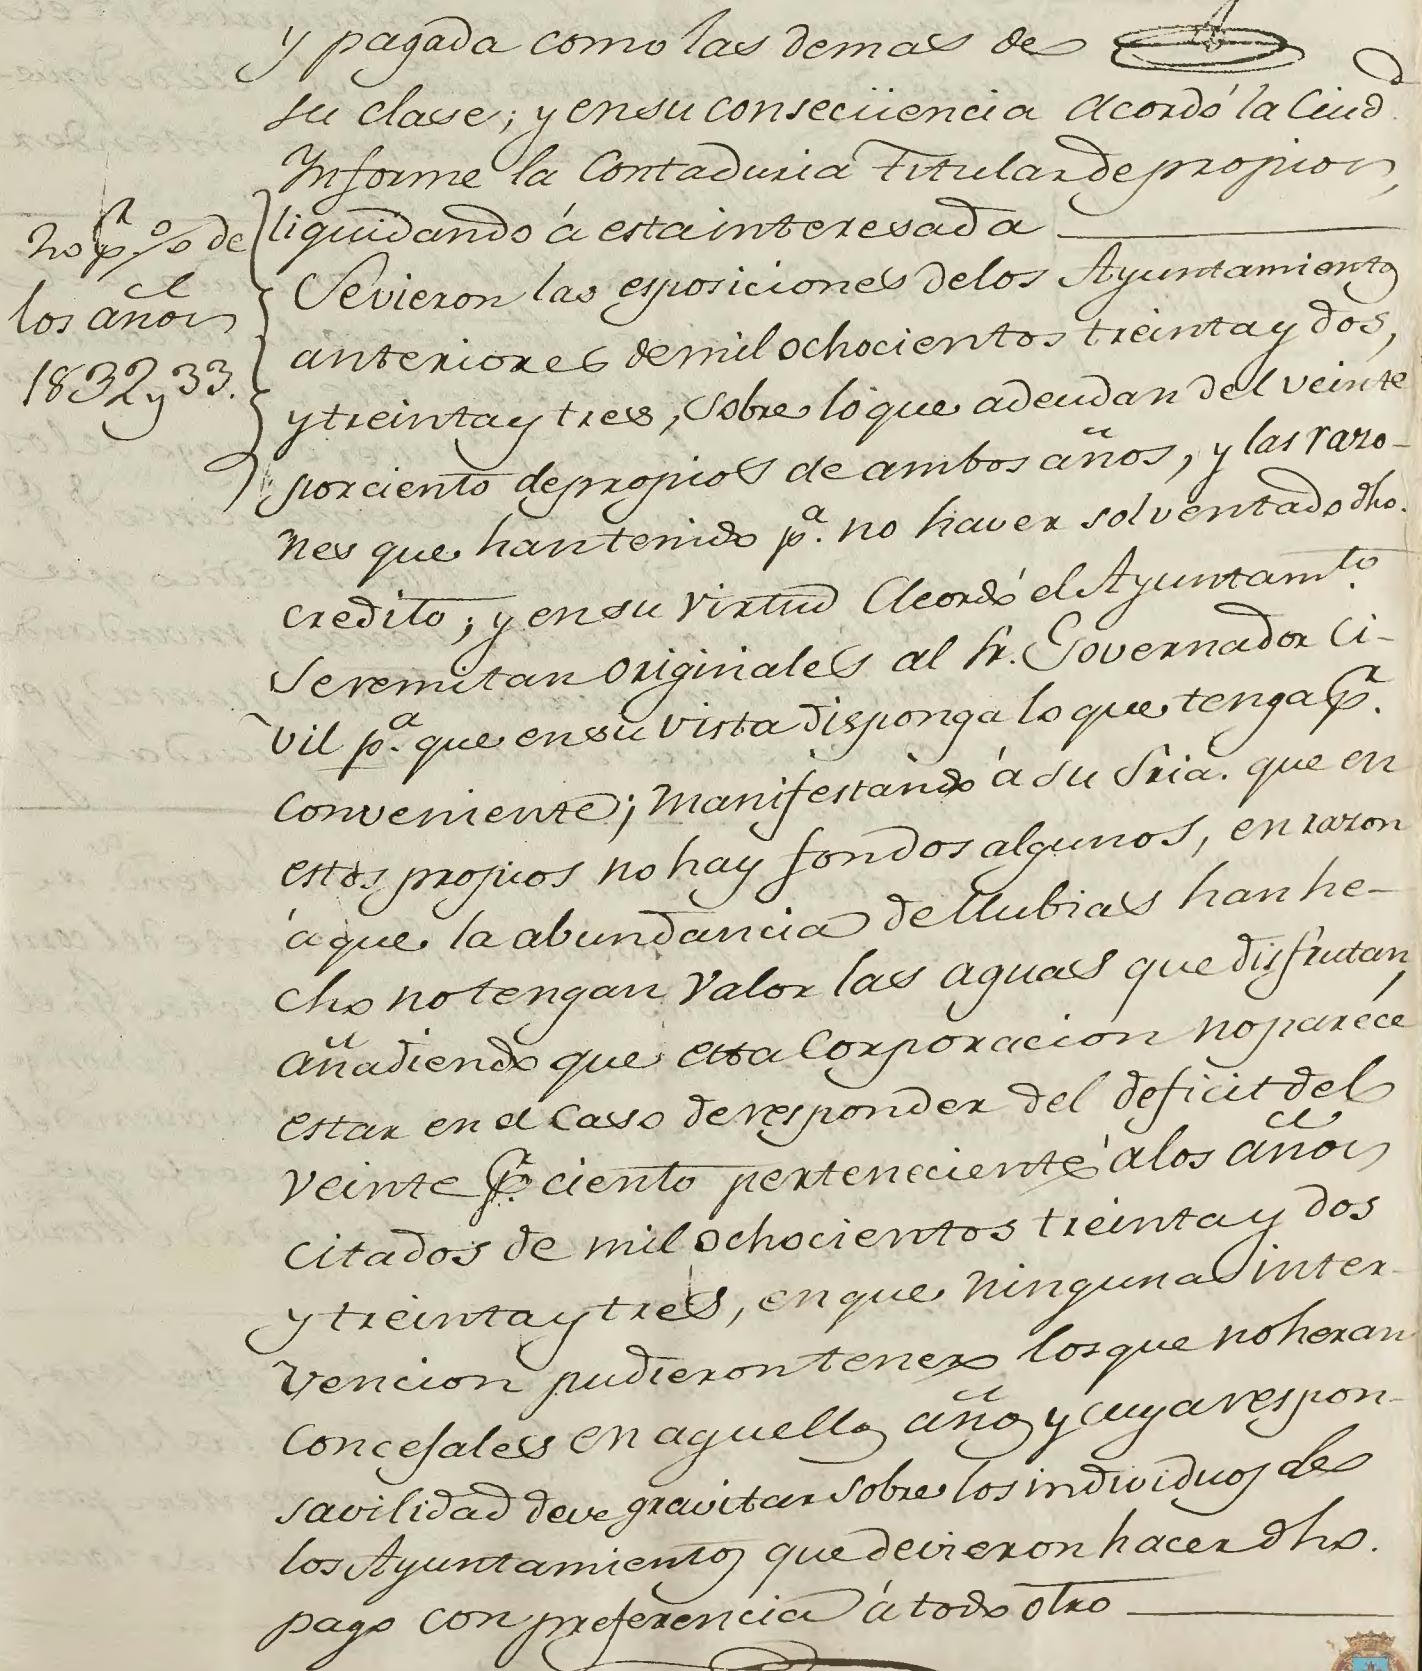 y pagada como las demas de
su clase; y en su consecüencia acordó la Ciud.d
Informe la Contaduria titular de propios,
liquidando á esta interesada
20 p.r % de
los años
1832 y 33.
Se vieron las esposiciones de los Ayuntamientos
anteriores de mil ochocientos treinta y dos,
y treinta y tres, sobre lo que adeudan del veinte
por ciento de propios de ambos años, y las razo-
nes que han tenido p.a no haver solventado dho.
credito; y en su virtud Acordó el Ayuntam.to
Se remitan originales al Sr. Governador Ci-
vil p.a que en su vista disponga lo que tenga p.r
conveniente; manifestando á su Sria. que en
estos propios no hay fondos algunos, en razon
á que la abundancia de llubias han he-
cho no tengan valor las aguas que disfrutan,
añadiendo que esta Corporacion no parece
estar en el caso de responder del deficit del
veinte p.r ciento perteneciente á los años
citados de mil ochocientos treinta y dos
y treinta y tres, en que ninguna inter-
vencion pudieron tener los que no heran
Concejales en aquellos años y cuya respon-
savilidad deve gravitar sobre los individuos de
los Ayuntamientos que devieron hacer dho.
pago con preferencia á todo otro